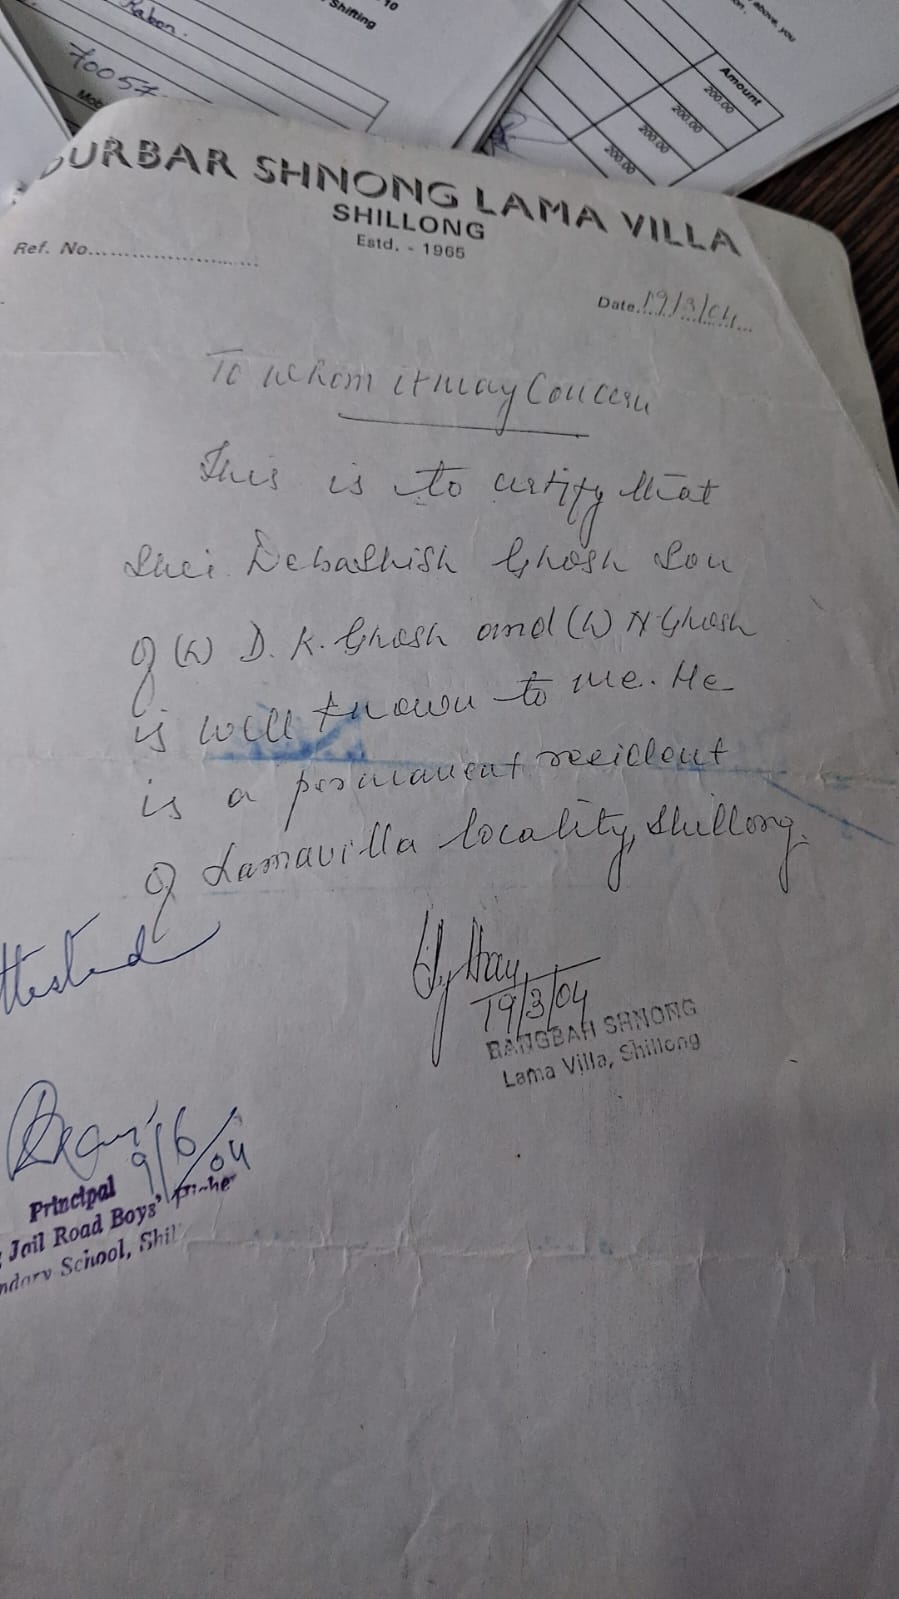 10
Shifting
Rabon.
70057
Mob
above, you
Amount
200.00
200.00
200.00
200.00
DURBAR SHNONG LAMA VILLA
SHILLONG
Estd. - 1965
Ref. No.
Date 19/3/04
To whom it may Concern
This is to certify that
Shri Debashish Ghosh Son
of (L) D. K. Ghosh and (L) N Ghosh
is well known to me. He
is a permanent resident
of Lamavilla locality, Shillong.
Attested
19/3/04
RANGBAH SHNONG
Lama Villa, Shillong
9/6/04
Principal
Jail Road Boys'
ndary School, Shil